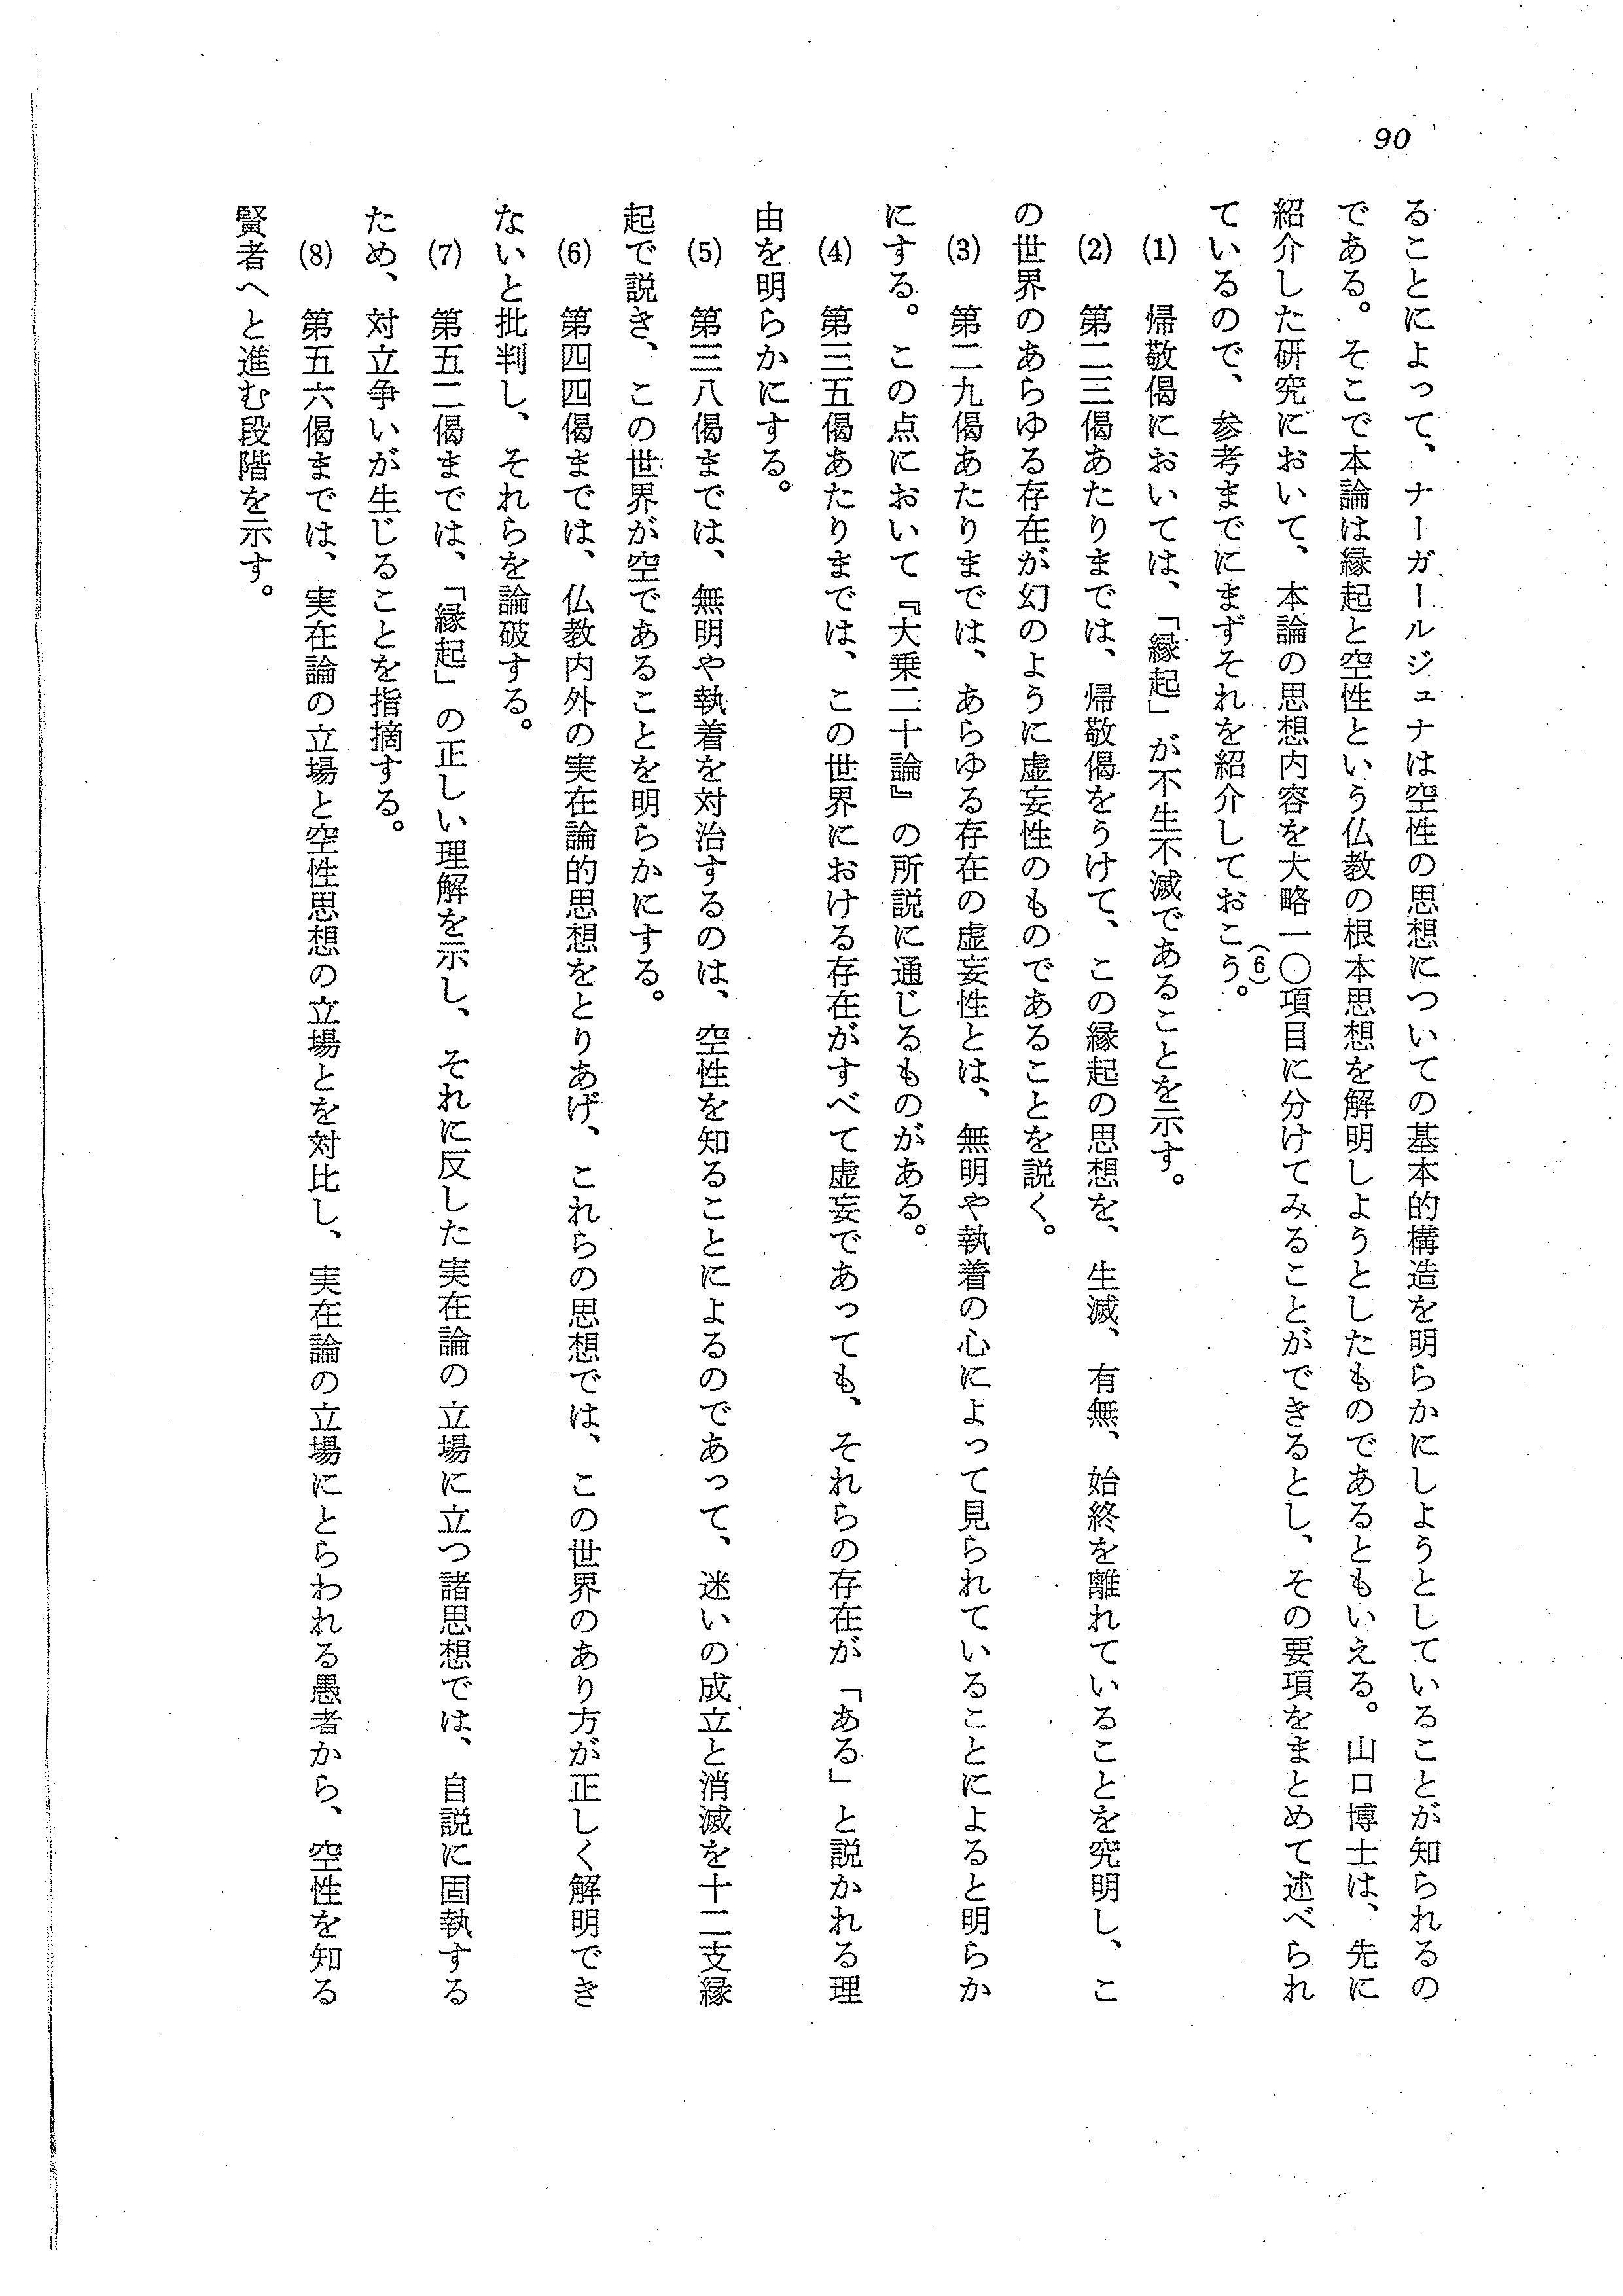 90
ることによって、ナーガールジュナは空性の思想についての基本的構造を明らかにしようとしていることが知られるの
である。そこで本論は縁起と空性という仏教の根本思想を解明しようとしたものであるともいえる。山口博士は、先に
紹介した研究において、本論の思想内容を大略一〇項目に分けてみることができるとし、その要項をまとめて述べられ
ているので、参考までにまずそれを紹介しておこう。(6)
(1) 帰敬偈においては、「縁起」が不生不滅であることを示す。
(2) 第二三偈あたりまでは、帰敬偈をうけて、この縁起の思想を、生滅、有無、始終を離れていることを究明し、こ
の世界のあらゆる存在が幻のように虚妄性のものであることを説く。
(3) 第二九偈あたりまでは、あらゆる存在の虚妄性とは、無明や執着の心によって見られていることによると明らか
にする。この点において『大乗二十論』の所説に通じるものがある。
(4) 第三五偈あたりまでは、この世界における存在がすべて虚妄であっても、それらの存在が「ある」と説かれる理
由を明らかにする。
(5) 第三八偈までは、無明や執着を対治するのは、空性を知ることによるのであって、迷いの成立と消滅を十二支縁
起で説き、この世界が空であることを明らかにする。
(6) 第四四偈までは、仏教内外の実在論的思想をとりあげ、これらの思想では、この世界のあり方が正しく解明でき
ないと批判し、それらを論破する。
(7) 第五二偈までは、「縁起」の正しい理解を示し、それに反した実在論の立場に立つ諸思想では、自説に固執する
ため、対立争いが生じることを指摘する。
(8) 第五六偈までは、実在論の立場と空性思想の立場とを対比し、実在論の立場にとらわれる愚者から、空性を知る
賢者へと進む段階を示す。